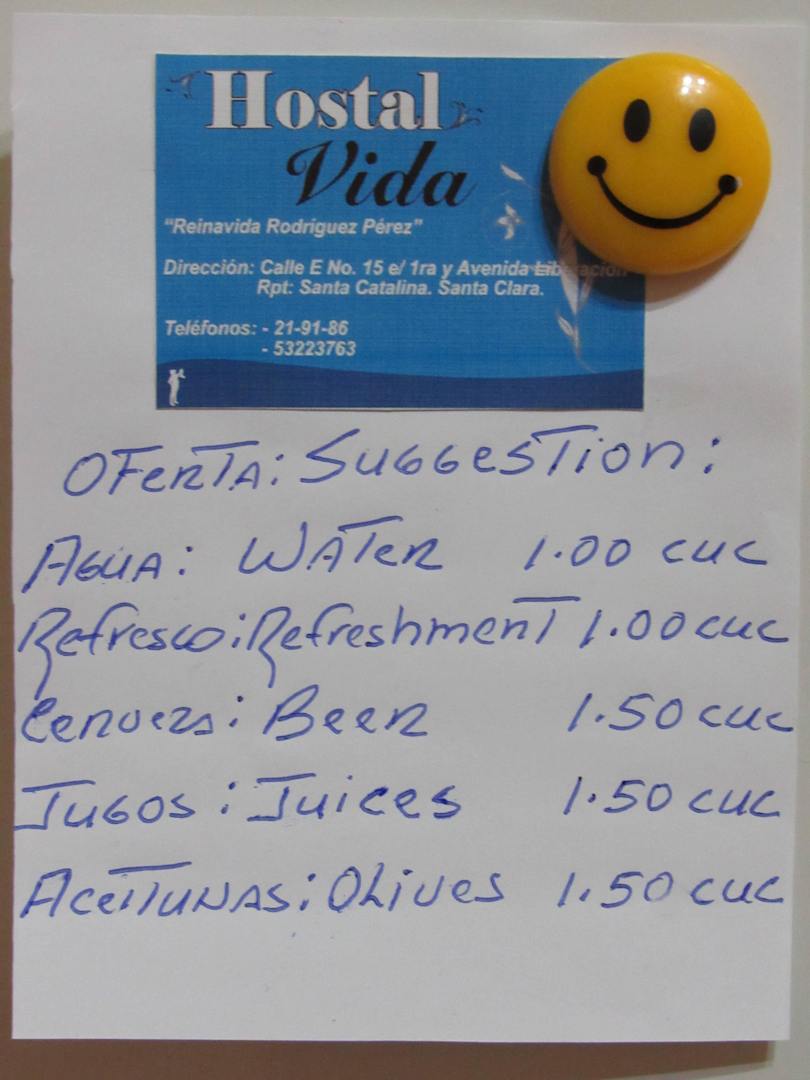 Hostal
Vida
"Reinavida Rodríguez Pérez"
Dirección: Calle E No. 15 e/ 1ra y Avenida Liberación
Rpt: Santa Catalina. Santa Clara.
Teléfonos: - 21-91-86
- 53223763
OFERTA: SUGGESTION:
AGUA: WATER 1.00 CUC
Refresco: Refreshment 1.00 CUC
Cerveza: Beer 1.50 CUC
Jugos: Juices 1.50 CUC
ACEITUNAS: OLIVES 1.50 CUC